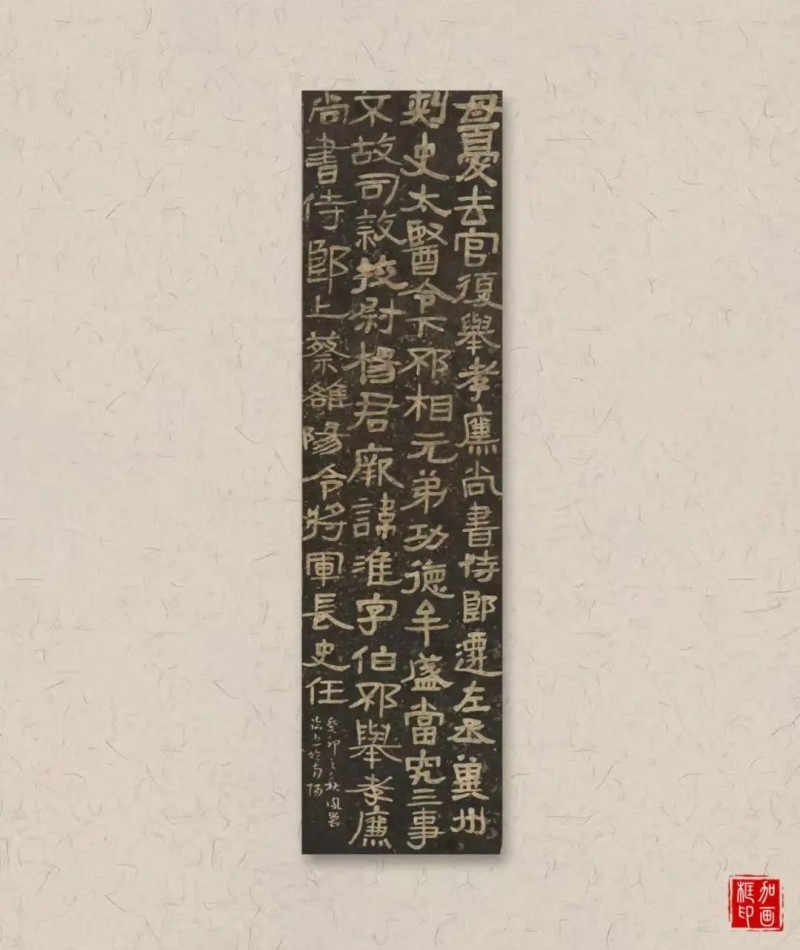 母憂去官復舉孝廉尚書侍郎遷左丞冀州
刺史太醫令下邳相元弟功德牟盛當究三事
文故司隸校尉楊君厥諱淮字伯邳舉孝廉
尚書侍郎上蔡雒陽令將軍長史任
癸卯之秋
於南陽
加画
框印